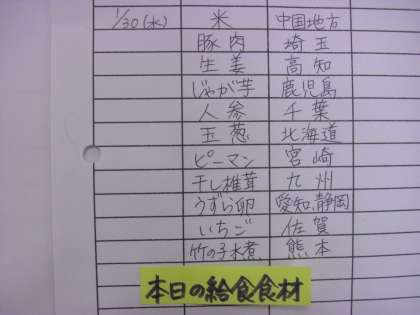 1/30(水) 米 中国地方
豚肉 埼玉
生姜 高知
じゃが芋 鹿児島
人参 千葉
玉葱 北海道
ピーマン 宮崎
干し椎茸 九州
うずら卵 愛知,静岡
いちご 佐賀
竹の子水煮 熊本
本日の給食食材